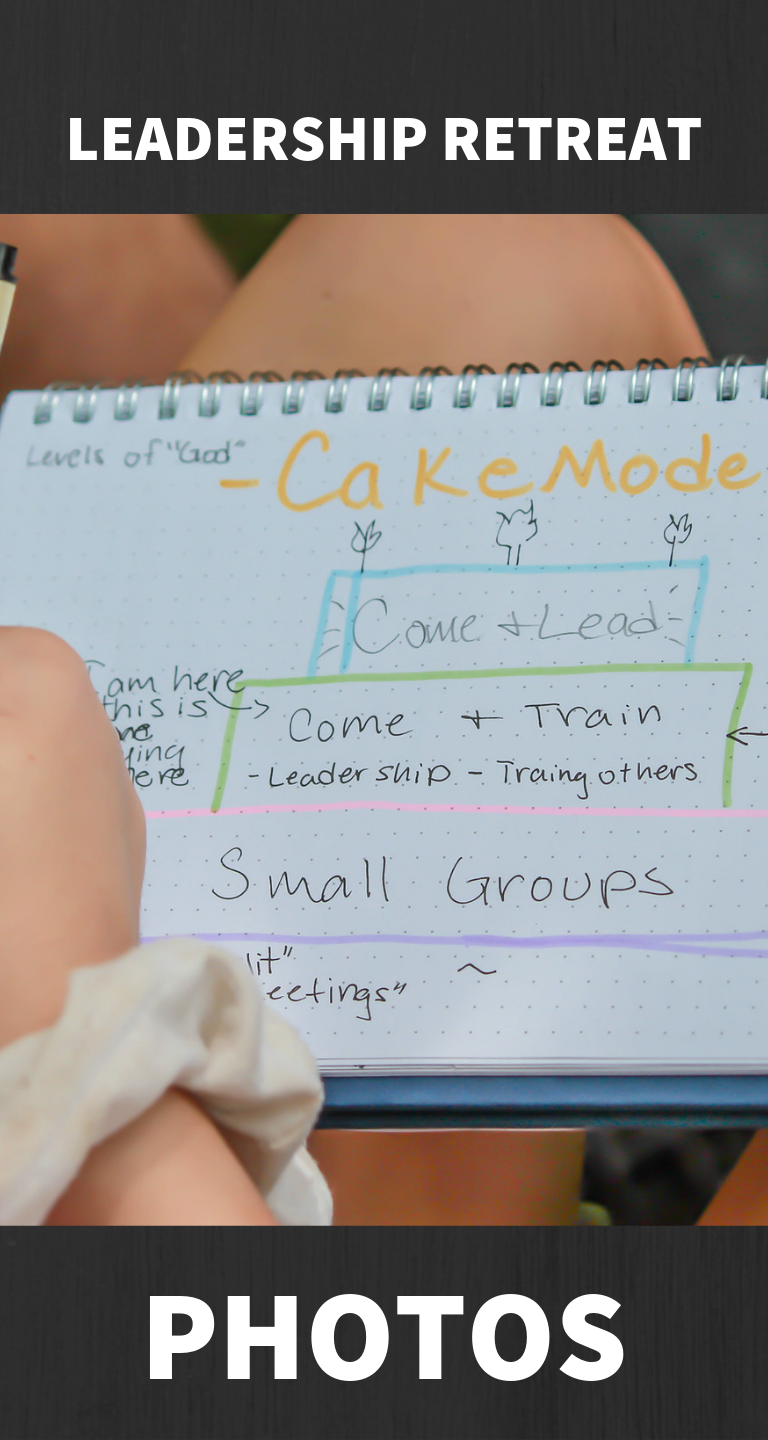 LEADERSHIP RETREAT
Levels of "God"
- Cake Mode
Come + Lead
am here
this is
Come + Train
- Leadership - Traing others
Small Groups
~
PHOTOS